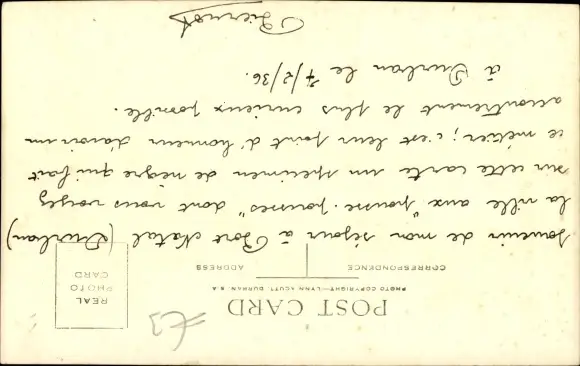 £3
POST CARD
PHOTO COPYRIGHT—LYNN ACUTT, DURBAN. S.A.
REAL
PHOTO
CARD
CORRESPONDENCE
ADDRESS
souvenir de mon séjour à Port Natal (Durban)
la ville aux "pousse-pousses" dont vous voyez
sur cette carte un specimen de nègre qui fait
ce métier; c'est leur point d'honneur d'avoir un
accoutrement le plus curieux possible.
à Durban le 7/2/36.